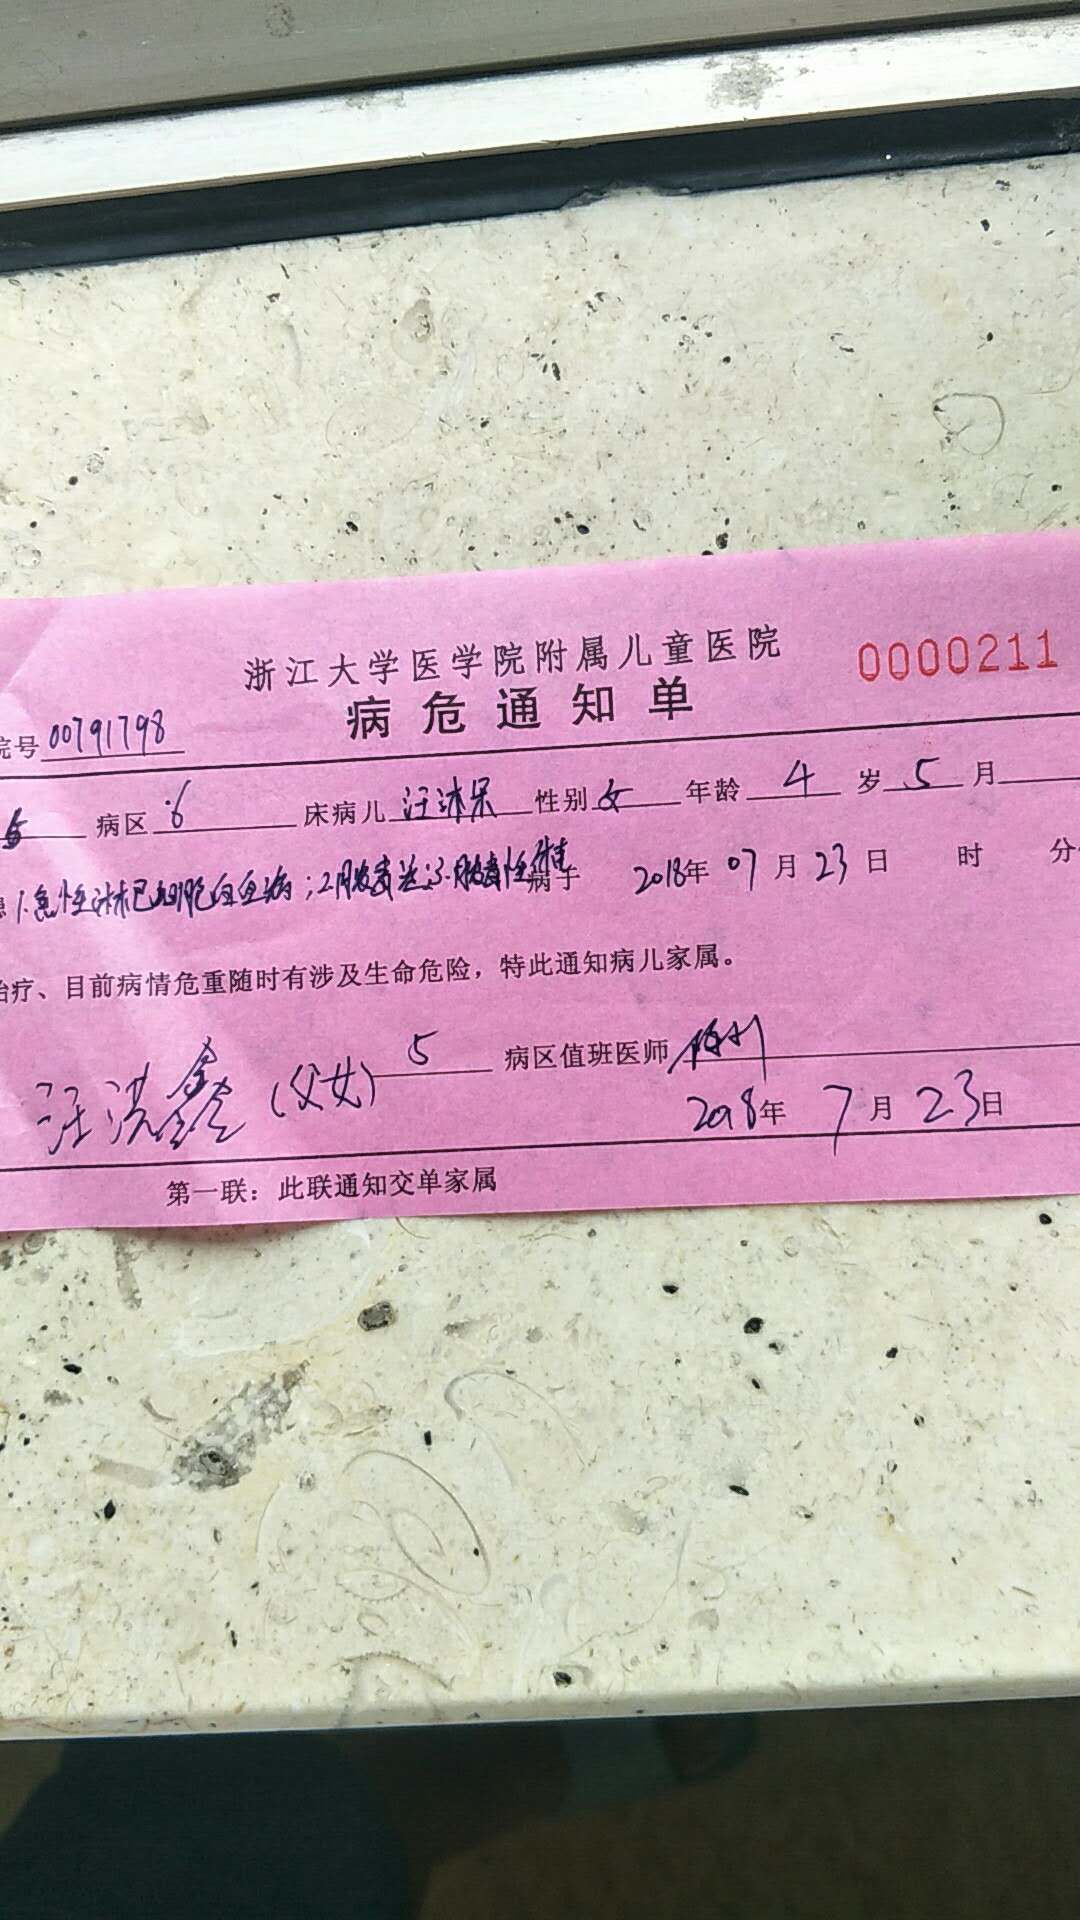 浙江大学医学院附属儿童医院
0000211
病危通知单
院号 00791798
病区 6 床病儿 汪沐呆 性别 女 年龄 4 岁 5 月
1.急性淋巴细胞白血病；2.脓毒症；3.脓毒性休克 病于 2018年 07 月 23 日 时 分
治疗、目前病情危重随时有涉及生命危险，特此通知病儿家属。
汪洪鑫（父女） 5 病区值班医师
2018年 7 月 23日
第一联：此联通知交单家属